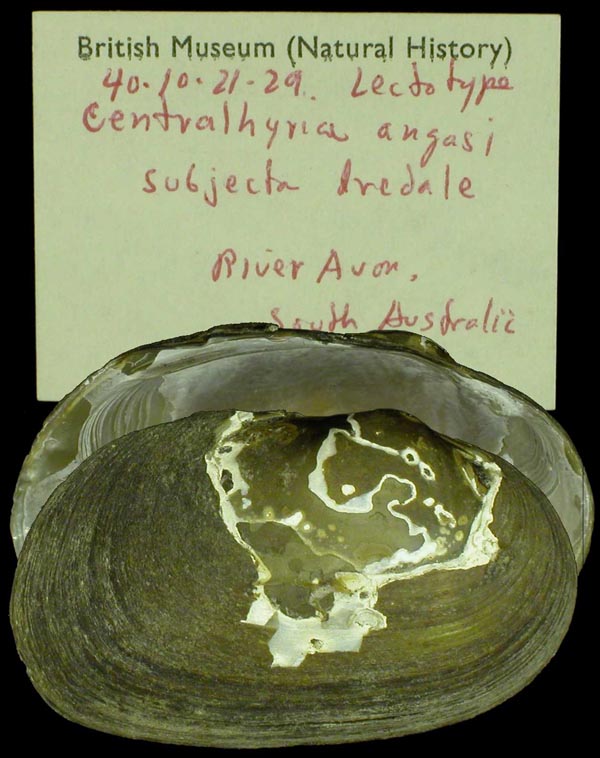 British Museum (Natural History)
40.10.21.29. Lectotype
Centralhyria angasi
subjecta Iredale
River Avon,
South Australia